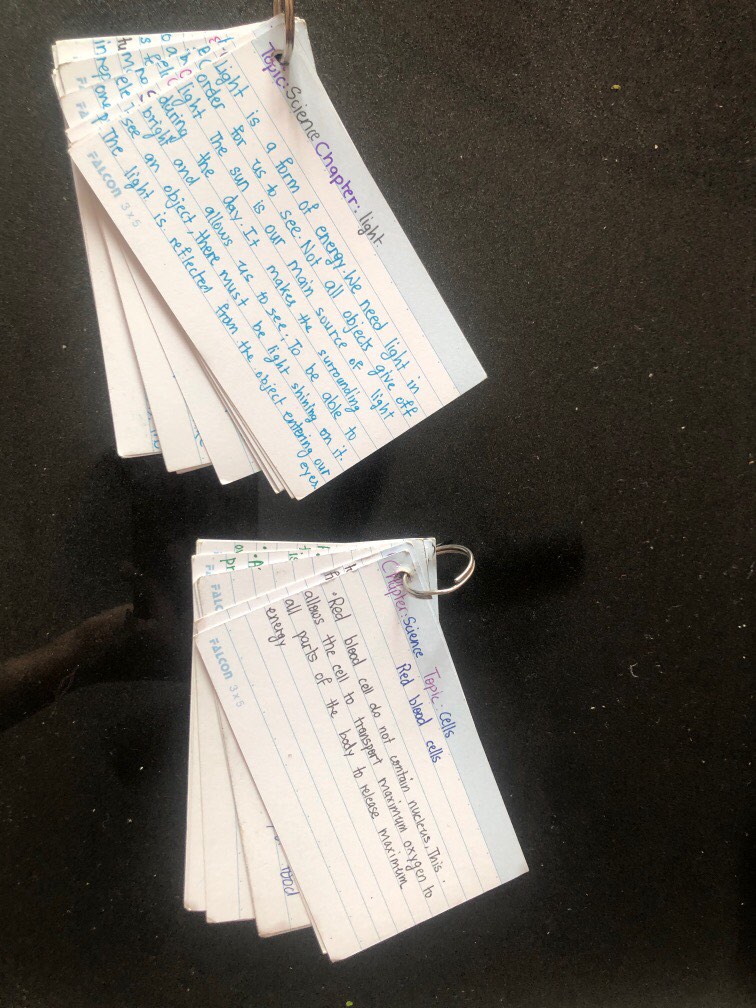 Topic: Science Chapter: light
Light is a form of energy. We need light in
order for us to see. Not all objects give off
light The sun is our main source of light
during the day. It makes the surrounding
bright and allows us to see. To be able to
see an object, there must be light shining on it.
The light is reflected from the object entering our eyes.
FALCON 3 x 5
Chapter: Science Topic: cells
Red blood cells
• Red blood cell do not contain nucleus. This
allows the cell to transport maximum oxygen to
all parts of the body to release maximum
energy
FALCON 3 x 5
food